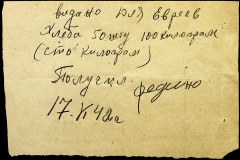 видано Для Евреев
Хлеба 50 шту 100 килограм
(сто килограм)
Получил
17.IV 42г